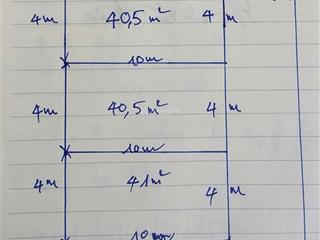 4m 40,5 m² 4 m
10m
4m 40,5 m² 4 m
10m
4m 41 m² 4 m